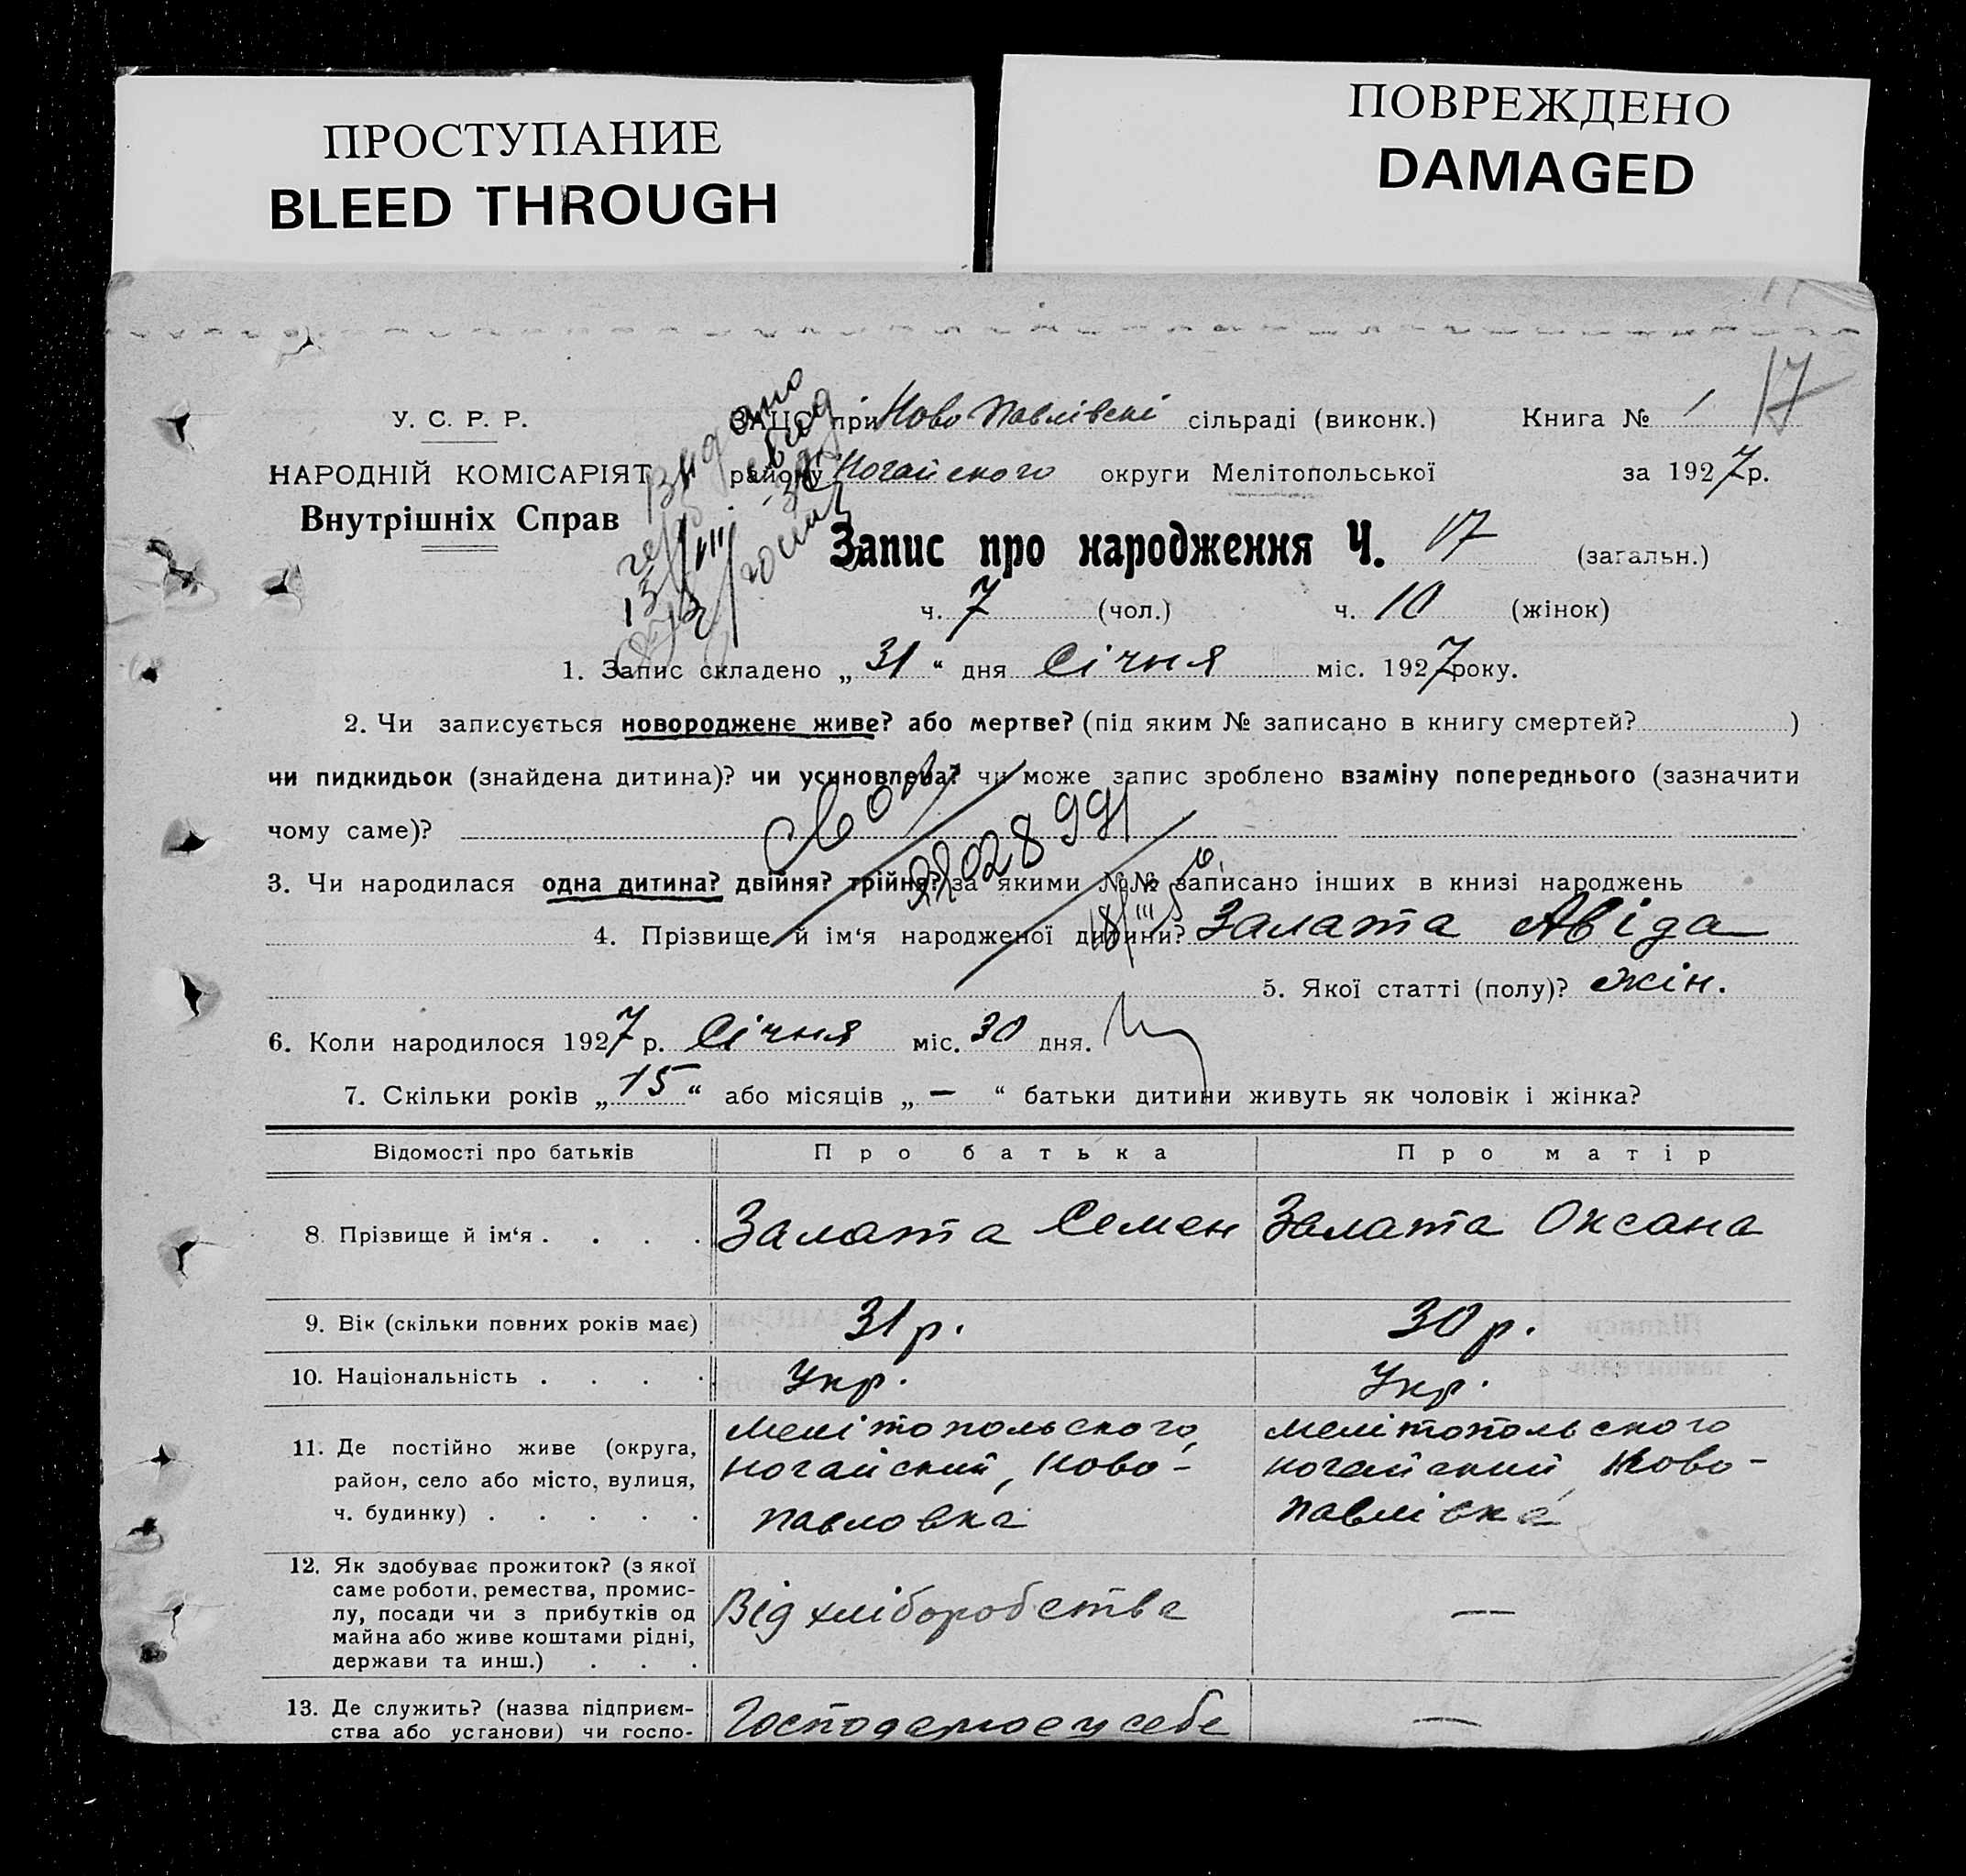 ПРОСТУПАНИЕ
BLEED THROUGH
ПОВРЕЖДЕНО
DAMAGED
17
У. С. Р. Р.
НАРОДНІЙ КОМІСАРІЯТ
Внутрішніх Справ
ЗАЦС при Ново Павлівскі сільраді (виконк.) Книга № 1
району Ногайского округи Мелітопольської за 1927 р.
Запис про народження Ч. 17 (загальн.)
ч. 7 (чол.) ч. 10 (жінок)
1. Запис складено „ 31 “ дня Січня міс. 1927 року.
2. Чи записується новороджене живе? або мертве? (під яким № записано в книгу смертей? )
чи пидкидьок (знайдена дитина)? чи усиновлена? чи може запис зроблено взаміну попереднього (зазначити
чому саме)?
028991
3. Чи народилася одна дитина? двійня? трійня? за якими №№ записано інших в книзі народжень
4. Прізвище й ім‘я народженої дитини? Залата Авіда
5. Якої статті (полу)? жін.
6. Коли народилося 1927 р. Січня міс. 30 дня.
7. Скільки років „ 15 “ або місяців „ — “ батьки дитини живуть як чоловік і жінка?
Відомості про батьків Про батька Про матір
8. Прізвище й ім‘я . . . . Залата Семен Залата Оксана
9. Вік (скільки повних років має) 31 р. 30 р.
10. Національність . . . . Укр. Укр.
11. Де постійно живе (округа, Мелітопольского Мелітопольского
район, село або місто, вулиця, Ногайский, Ново- Ногайский Ново-
ч. будинку) . . . . . павловка павлівка
12. Як здобуває прожиток? (з якої
саме роботи, ремества, промис-
лу, посади чи з прибутків од Від хліборобства —
майна або живе коштами рідні,
держави та инш.) . . .
13. Де служить? (назва підприєм- Господарює у себе —
ства або установи) чи госпо-